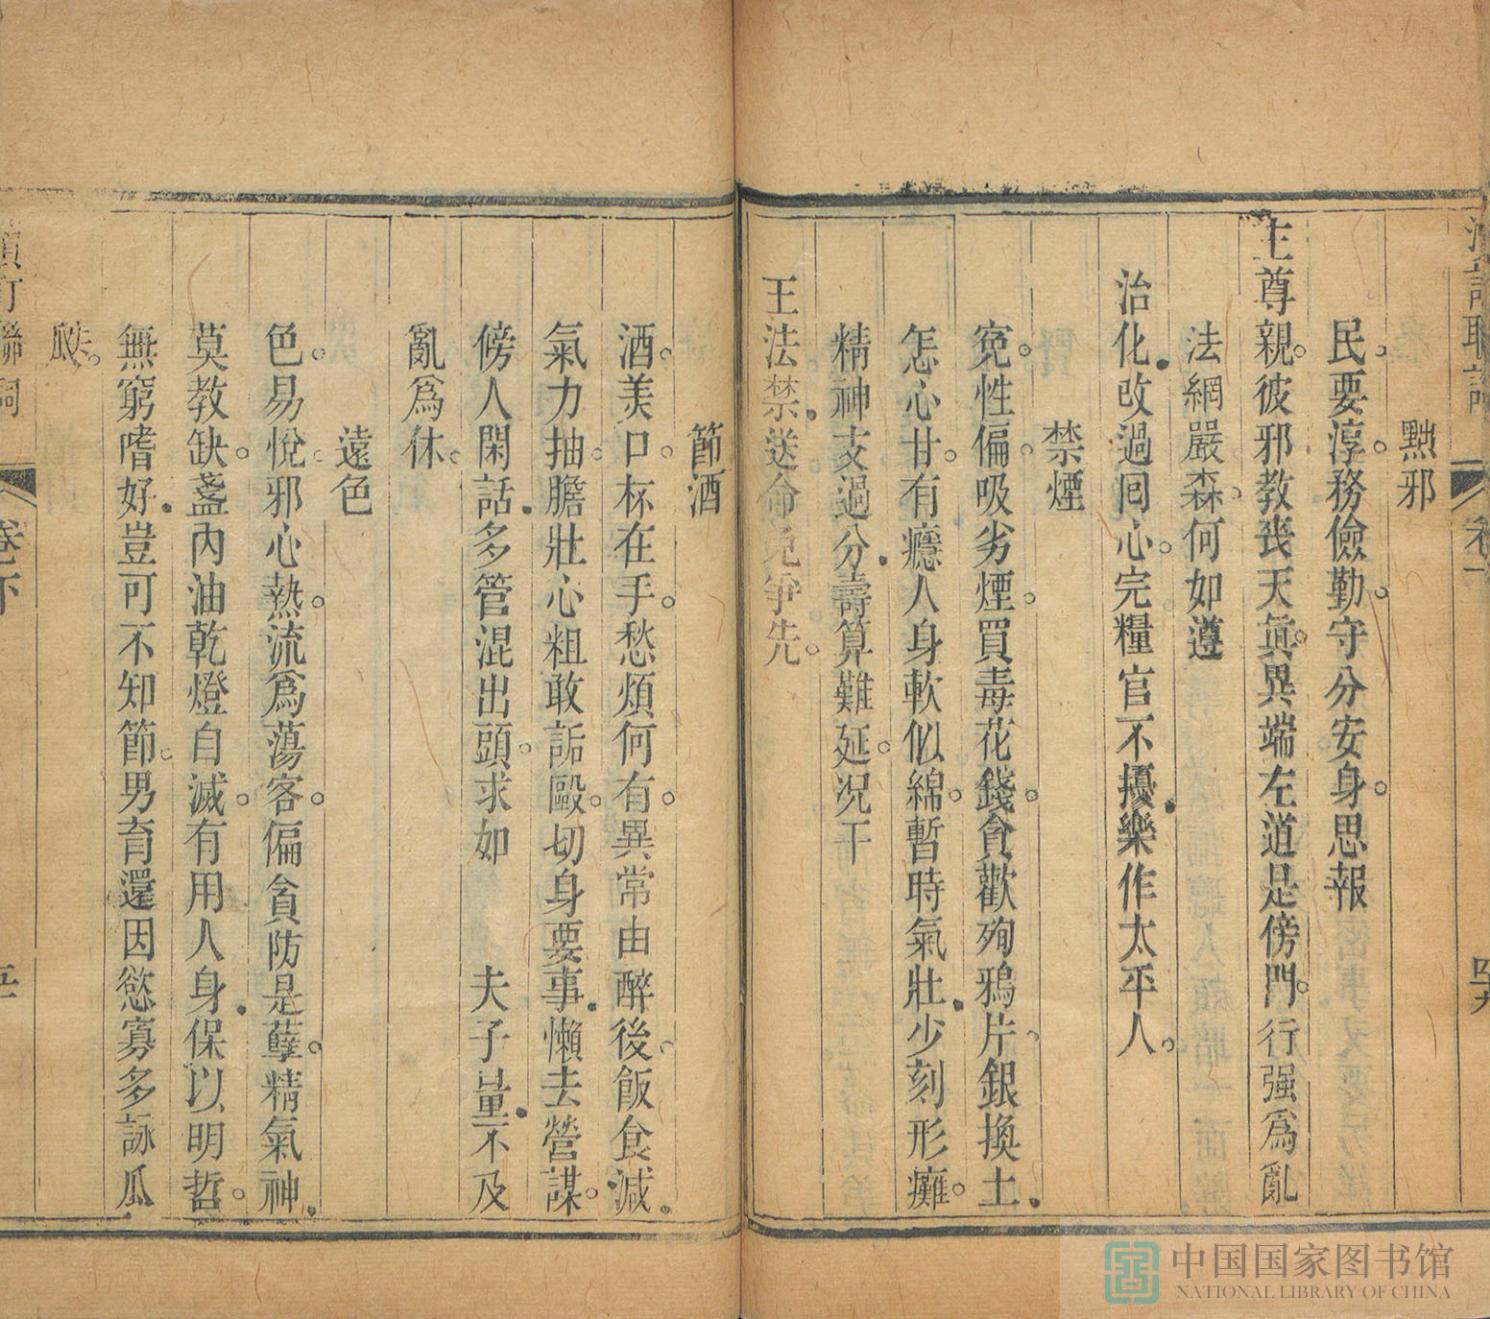 黜邪
民要淳務儉勤守分安身思報
主尊親彼邪教喪天眞異端左道是傍門行强爲亂
法網嚴森何如遵
治化改過囘心完糧官不擾樂作太平人
禁煙
寃性偏吸劣煙買毒花錢貪歡殉鴉片銀換土
怎心甘有癮人身軟似綿暫時氣壯少刻形癱
精神支過分壽算難延况干
王法禁送命免爭先
四九
節酒
酒美口杯在手愁煩何有異常由醉後飯食減
氣力抽膽壯心粗敢詬毆切身要事懶去營謀
傍人閑話多管混出頭求如 夫子量不及
亂爲休
遠色
色易悅邪心熱流爲蕩客偏貪防是孽精氣神
莫教缺盞內油乾燈自滅有用人身保以明哲
無窮嗜好豈可不知節男育還因慾寡多詠瓜
瓞
訂聯詞
卷下
中国国家图书馆
NATIONAL LIBRARY OF CHINA